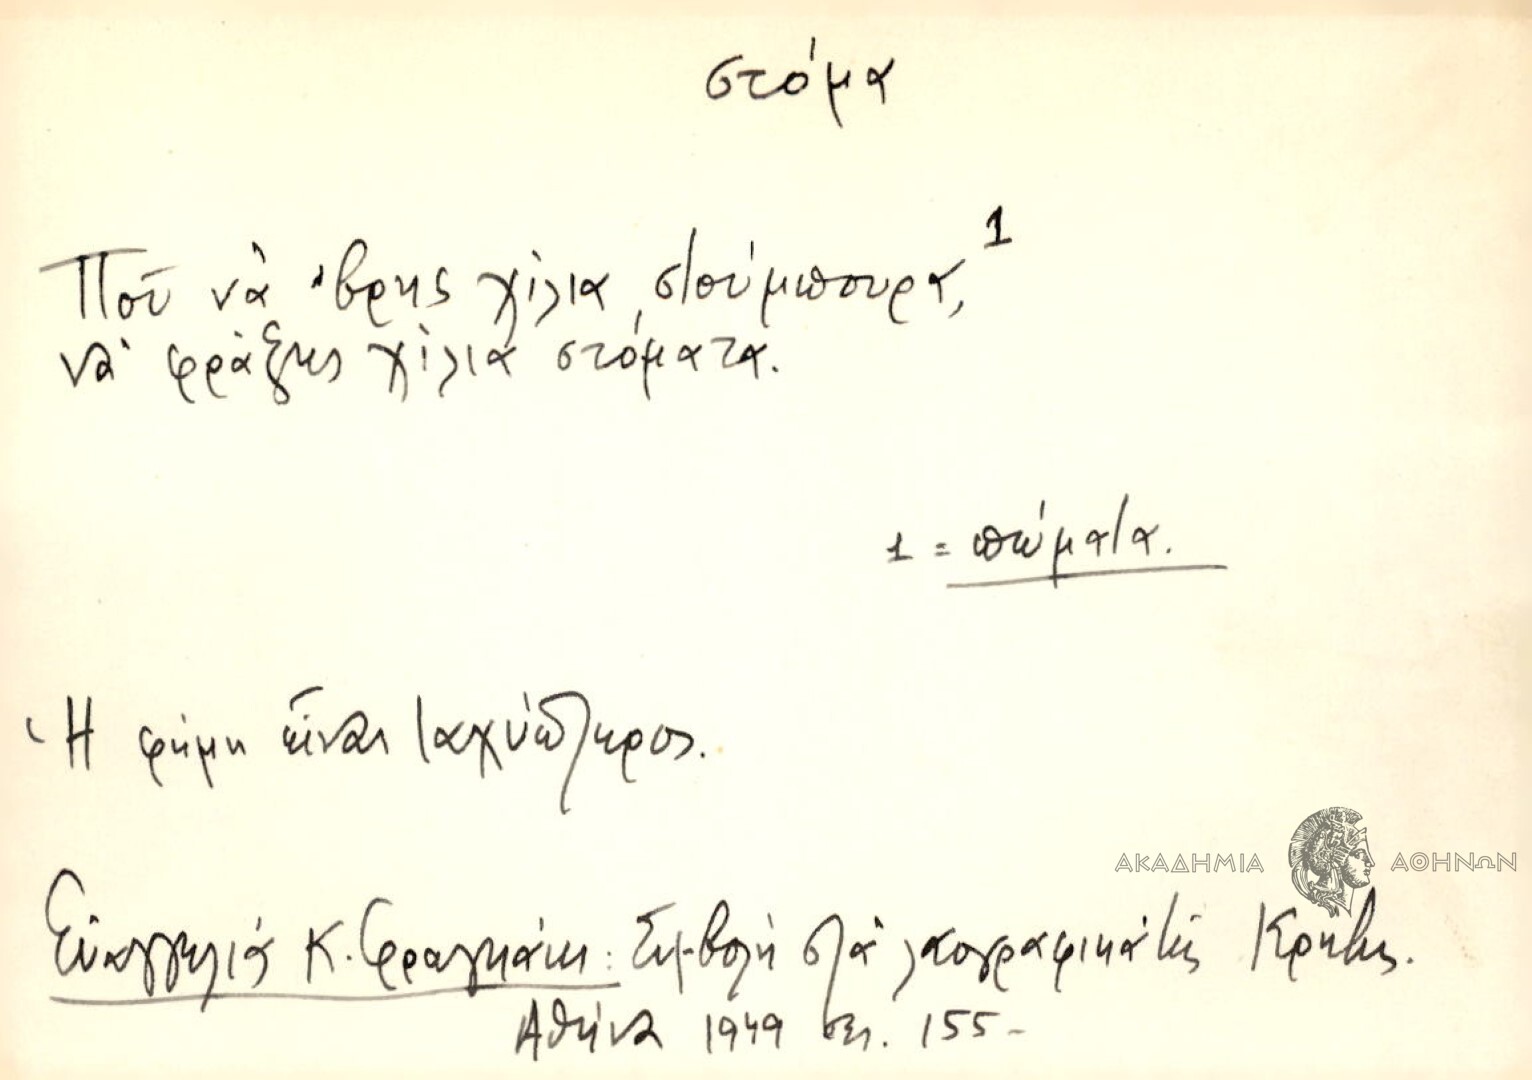 στόμα
Ποῦ νὰ 'βρῃς χίλια στούμπουρα,¹
νὰ φράξῃς χίλια στόματα.
1 = πώματα.
Ἡ φήμη εἶναι ταχύπτερος.
Εὐαγγελιά Κ. Φραγκάκι: Συμβολή στὰ λαογραφικά τῆς Κρήτης.
Ἀθήνα 1949 σελ. 155-
ΑΚΑΔΗΜΙΑ ΑΘΗΝΩΝ